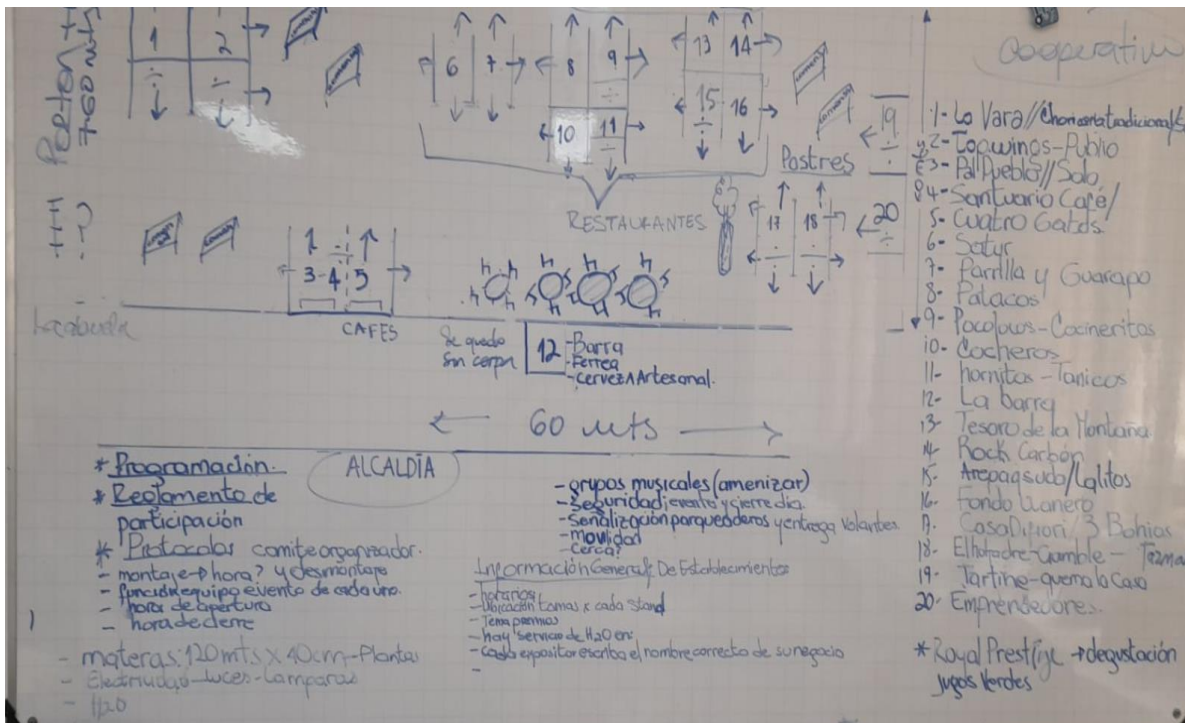 Porton
760 mts
1
2
6
7
8
9
10
11
13
14
15
16
19
Postres
17
18
20
RESTAURANTES
?
3-4
5
CAFES
Se quedo
Sin carpa
12
-Barra
-Ferrea
-CervezaArtesanal.
60 mts
* Programación.
* Reglamento de
participación
* Protocolos comite organizador.
- montaje → hora? y desmontaje
- función equipo evento de cada uno.
- hora de apertura
- hora de cierre
- materas: 120mts x 40cm - Plantas
- Electricidad - Luces - Lamparas
- H20
ALCALDÍA
- grupos musicales (amenizar)
- Seguridad; evento y cierre dia.
- Señalización parqueaderos y entrega Volantes
- movilidad
- Cerca?
Información General; De Establecimientos
- horarios
- Ubicación tomas x cada stand
- Tema permisos
- hay servicio de H2O en:
- cada expositor escriba el nombre correcto de su negocio
-
Cooperativ
1- La Vara//Choriceria tradicional
2- Toqwings-Publio
3- Pal Pueblo//Solo
4- Santuario Café/
5- Cuatro Gatos.
6- Satur
7- Parrilla y Guarapo
8- Palacos
9- Pocolows-Cocineritos
10- Cocheros
11- hornitos-Tanicos
12- La barra
13- Tesoro de la Montaña
14- Rock Carbón
15- Arepaqsudo/Lalitos
16- Fondo Llanero
17- Casa / 3 Bohias
18- Elhojadre-Crumble -
19- Tartine-quema la Casa
20- Emprendedores.
* Royal Prestige → degustación
Jugos Verdes